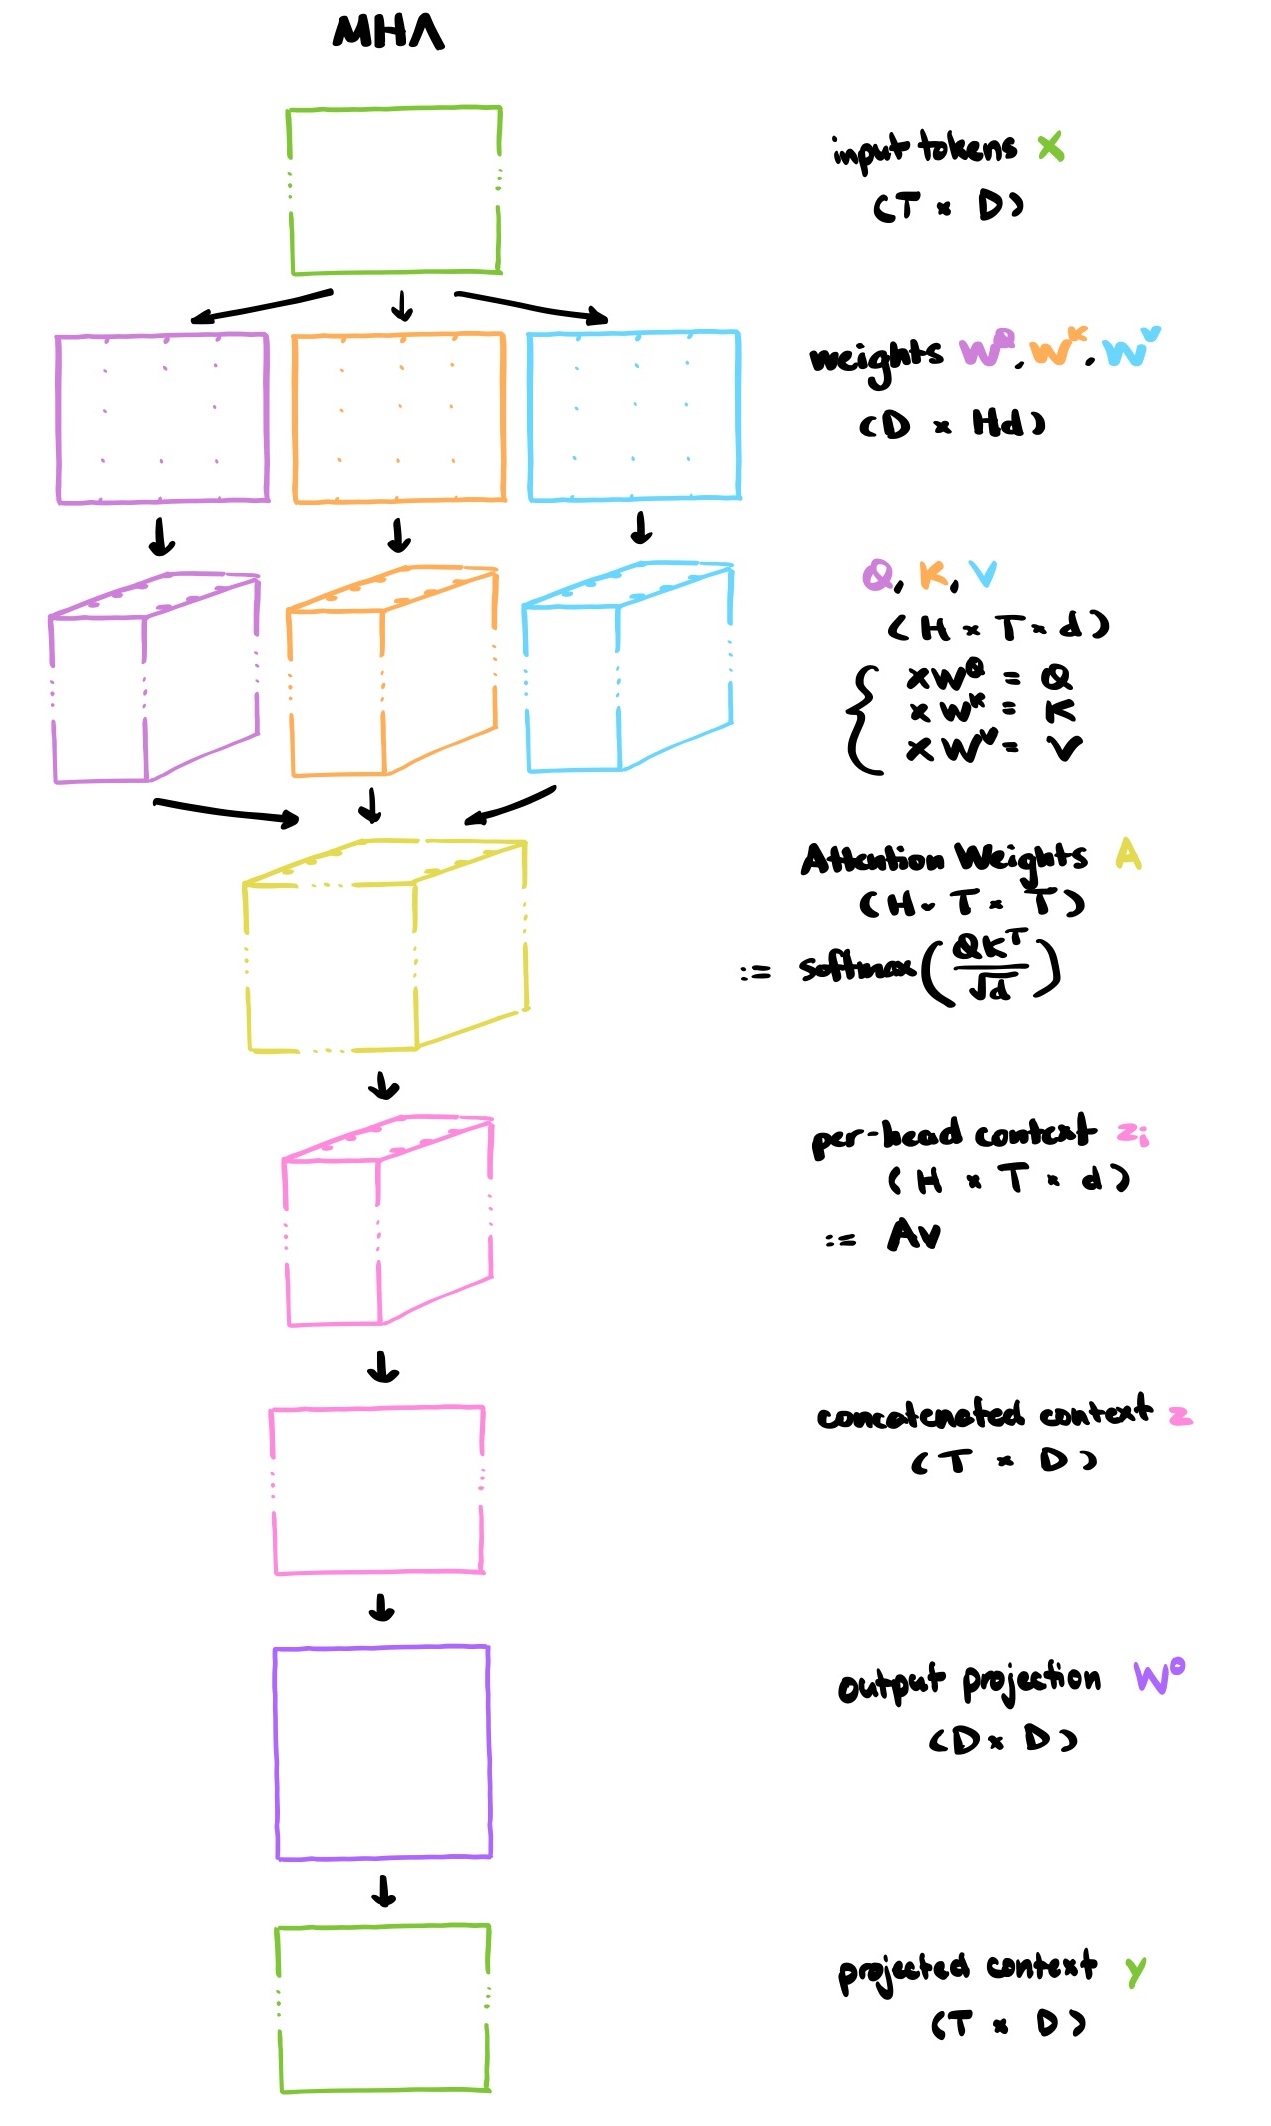 MHA
input tokens x
(T × D)
weights W^Q, W^K, W^V
(D × Hd)
Q, K, V
(H × T × d)
{ xW^Q = Q
xW^K = K
xW^V = V
Attention Weights A
(H × T × T)
:= softmax(QK^T/√d)
per-head context z_i
(H × T × d)
:= AV
concatenated context z
(T × D)
output projection W^O
(D × D)
projected context y
(T × D)